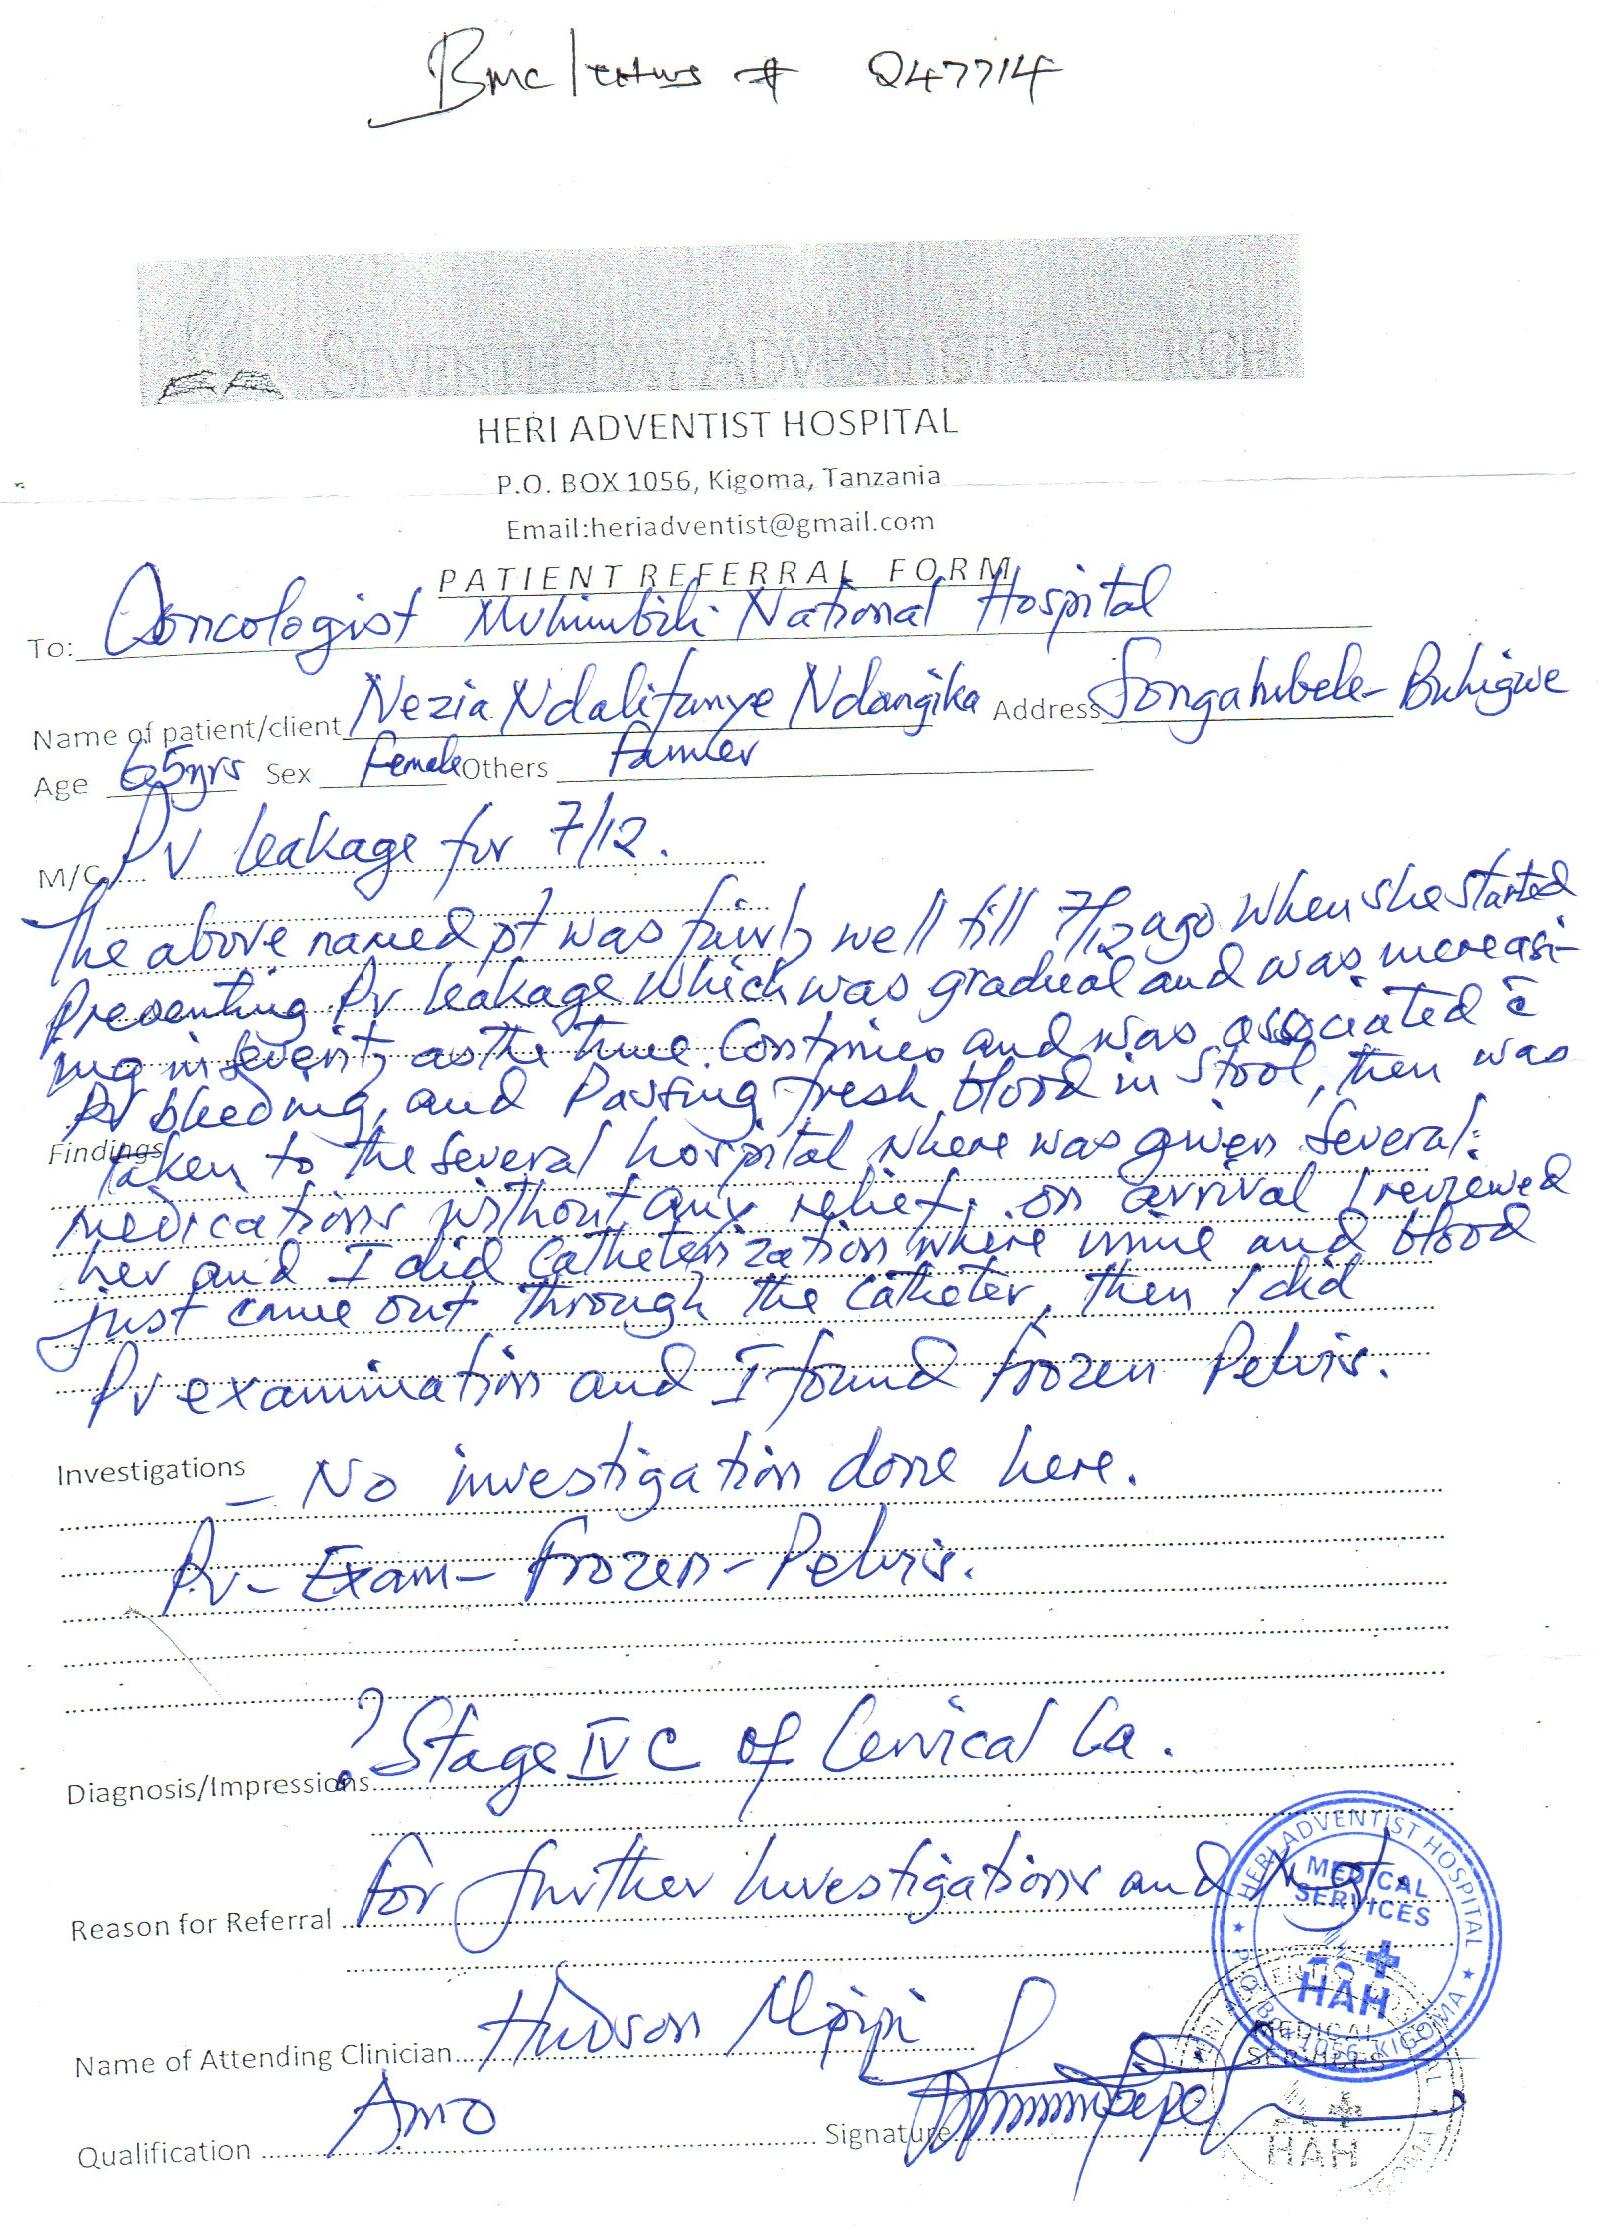 Bmc # Q47714
SEVENTH-DAY ADVENTIST CHURCH
HERI ADVENTIST HOSPITAL
P.O. BOX 1056, Kigoma, Tanzania
Email:heriadventist@gmail.com
PATIENT REFERRAL FORM
To: Oncologist Muhimbili National Hospital
Name of patient/client Nezia Ndalifunye Ndangika Address Songambele - Buhigwe
Age 65yrs Sex Female Others Farmer
M/C PV leakage for 7/12.
The above named pt was fairly well till 7/12 ago when she started
presenting PV leakage which was gradual and was increasi-
ng in severity as the time continues and was associated c̄
PV bleeding, and passing fresh blood in stool, then was
Findings taken to the several hospital where was given several
medications without any relief. on arrival I reviewed
her and I did catheterization where urine and blood
just came out through the catheter, then I did
PV examination and I found frozen pelvis.
Investigations – No investigation done here.
PV - Exam - Frozen - Pelvis.
Diagnosis/Impressions ? Stage IV C of Cervical Ca.
Reason for Referral For further Investigations and mgt.
Name of Attending Clinician Hudson
Qualification AMO Signature
HERI ADVENTIST HOSPITAL
MEDICAL
SERVICES
HAH
P.O. BOX 1056, KIGOMA
MEDICAL
SERVICES
HAH